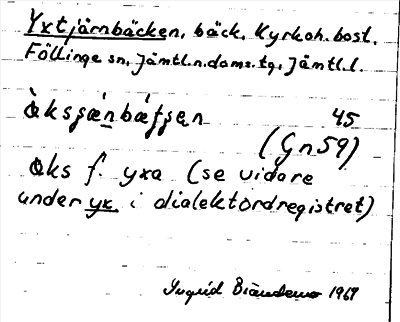 Yxtjärnbäcken, bäck, Kyrkoh.bost.
Föllinge sn, Jämtl.n.doms.tg, Jämtl.l.
45
(Gn59)
f. yxa (se vidare
under yx i dialektordregistret)
Ingrid 1969